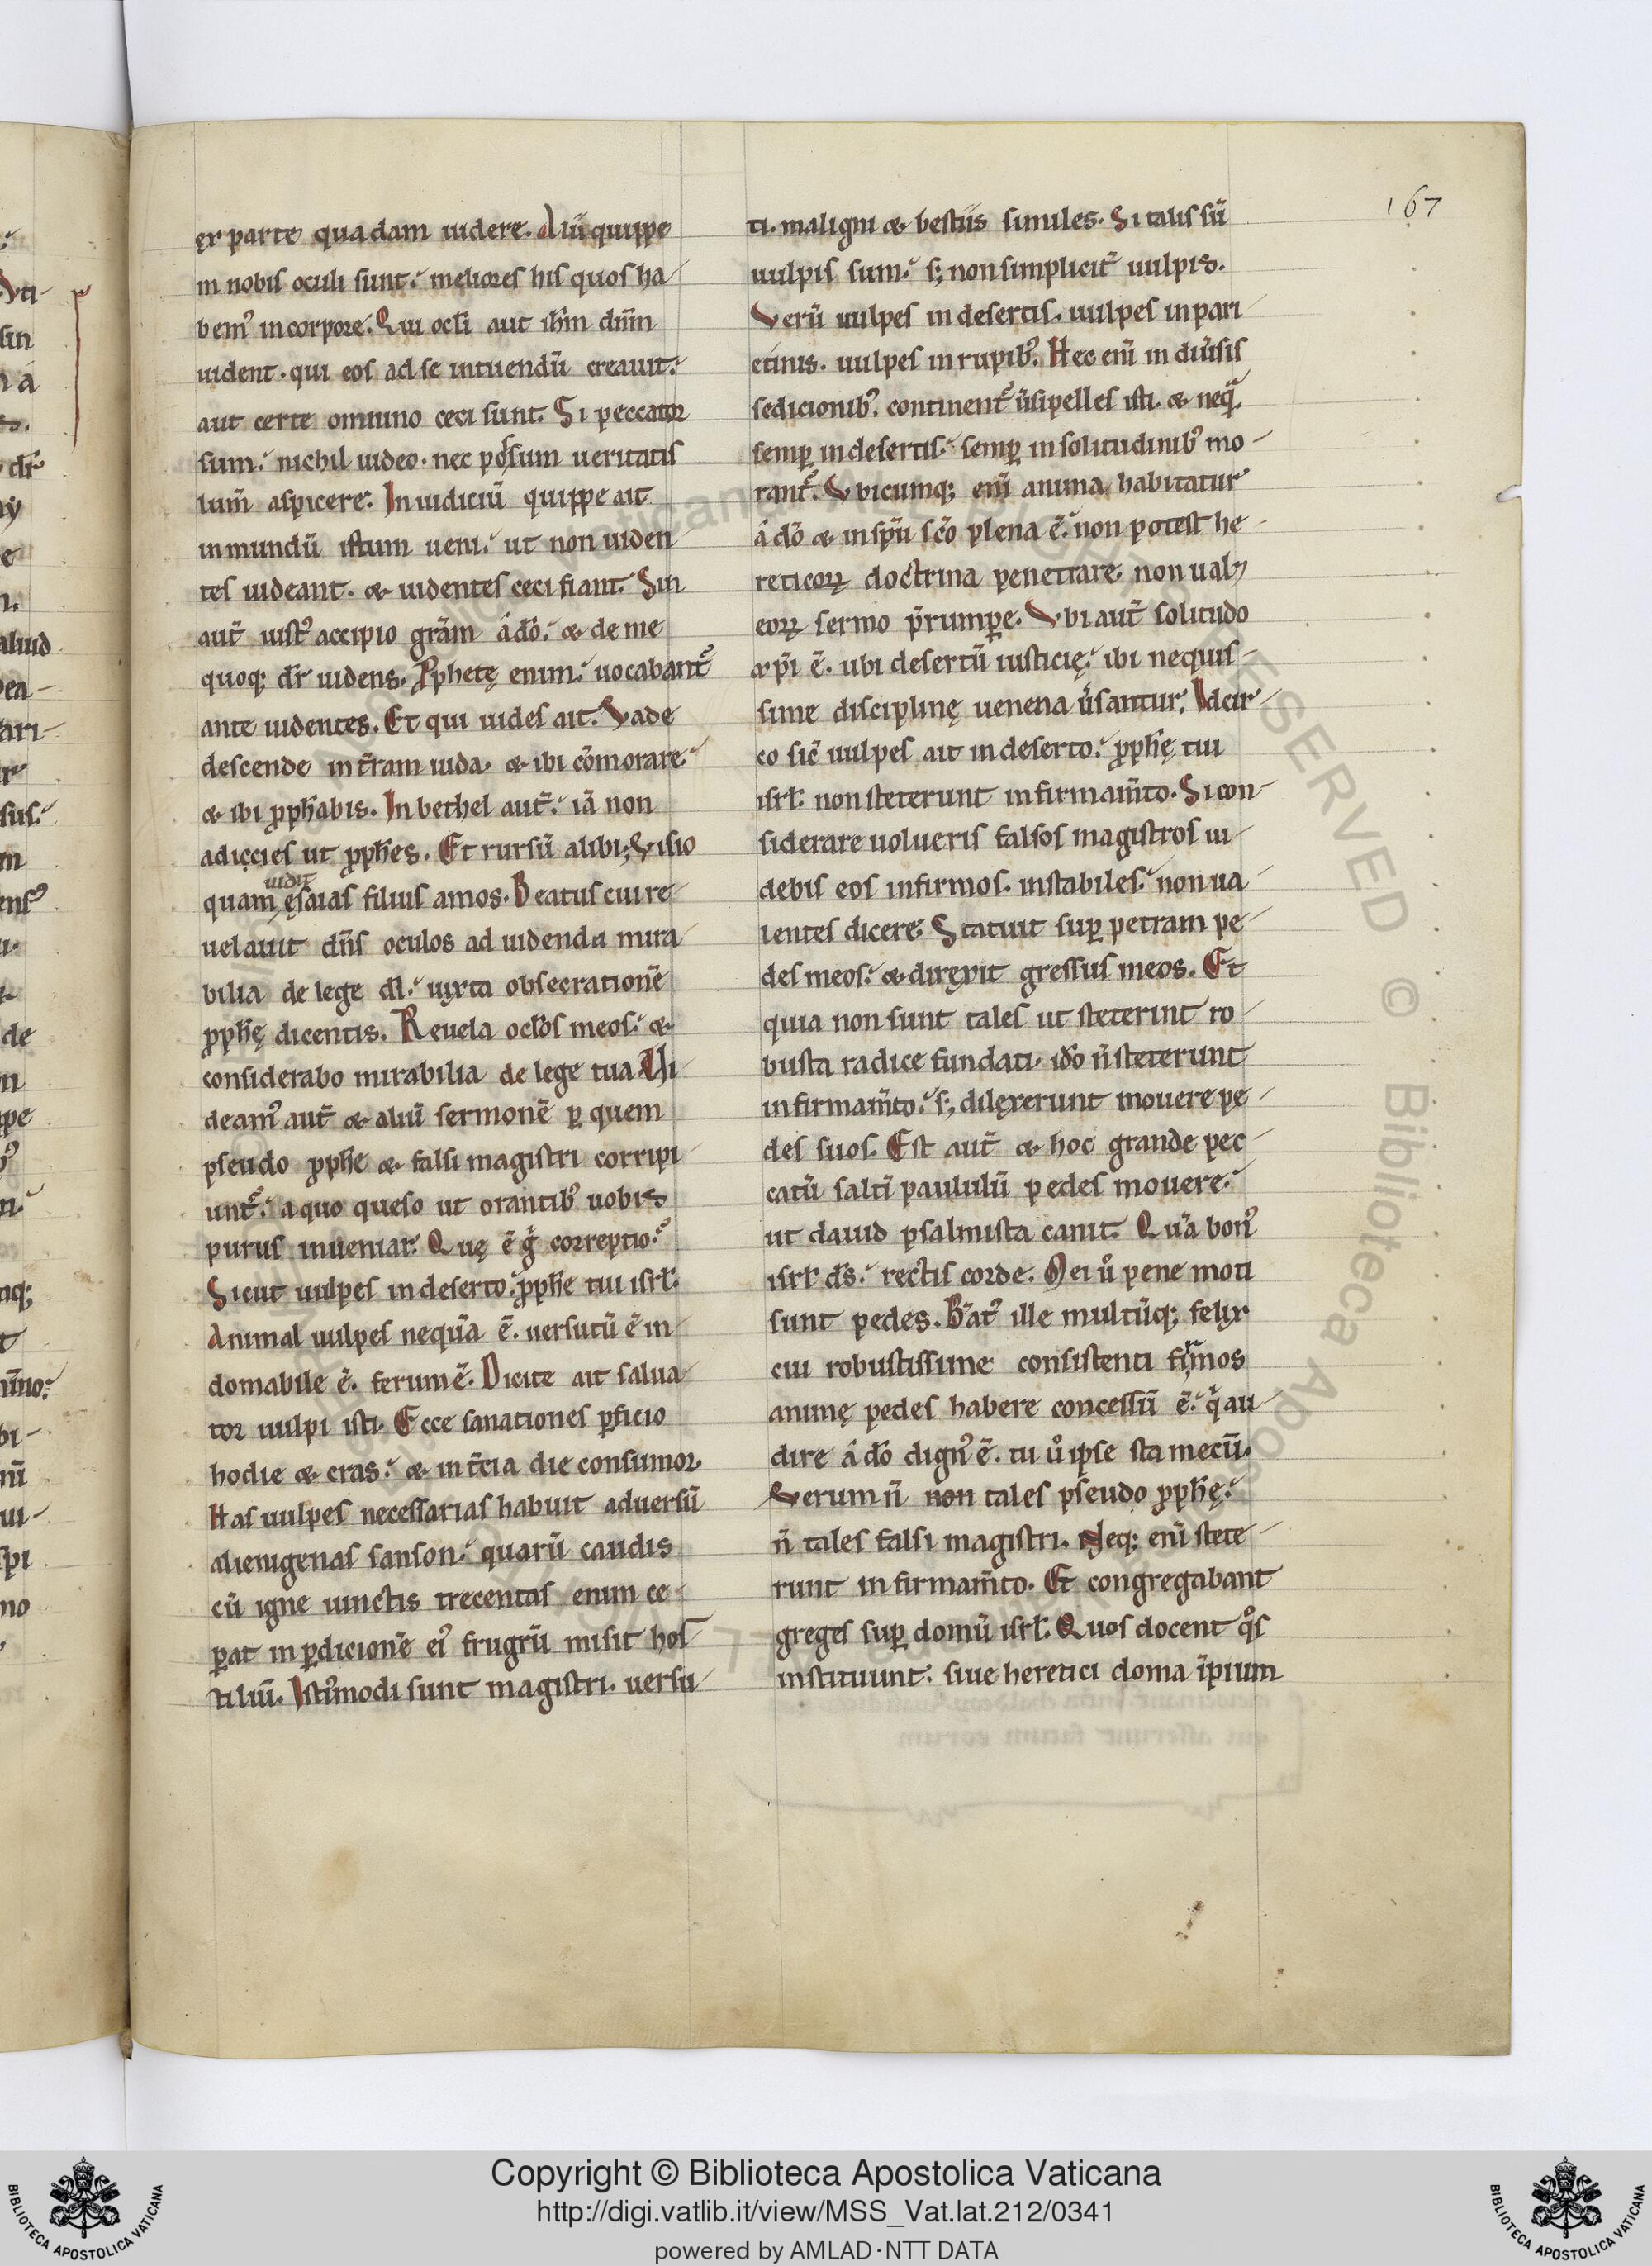 167
ex parte quadam uidere. Alii quippe
in nobis oculi sunt: meliores his quos ha-
bem᷒ in corpore. Qui ocłi aut ihm̄ dnm̄
uident. qui eos ad se intuendū creauit:
aut certe omnino ceci sunt. Si peccator
sum: nichil uideo. nec possum ueritatis
lum̄ aspicere. In iudiciū quippe ait
in mundū istum ueni: ut non uiden
tes uideant. & uidentes ceci fiant. Sin
aut̄ iust᷒ accipio grām a dō: & de me
quoq; dr̄ uidens. Pphetę enim: uocabant᷒
ante uidentes. Et qui uides ait. Vade
descende in t̄ram iuda. & ibi cōmorare:
& ibi ꝓph̄abis. In bethel aut̄: iā non
adicies ut ꝓph̄es. Et rursū alibi; Visio
quam uidit ęsaias filius amos. Beatus cui re-
uelauit dn̄s oculos ad uidenda mira-
bilia de lege dī: iuxta obsecrationē
ꝓph̄ę dicentis. Reuela ocłos meos: &
considerabo mirabilia de lege tua. Vi
deam᷒ aut̄ & aliū sermonē ꝑ quem
pseudo ꝓph̄e & falsi magistri corripi-
unt᷒: a quo queso ut orantib᷒ uobis
purus inueniar. Quę ē gͥ correptio:
Sicut uulpes in deserto: ꝓph̄e tui isrł.
Animal uulpes nequā ē. uersutū ē in-
domabile ē. ferum ē. Dicite ait salua-
tor uulpi isti. Ecce sanationes ꝑficio
hodie & cras: & in t̄cia die consumor.
Has uulpes necessarias habuit aduersū
alienigenas sanson: quarū caudis
cū igne uinctis trecentas enim ce-
ꝑat in ꝑdicionē ei᷒ frugrū misit hos-
tiliū. Isti᷒modi sunt magistri. uersu-
ti. maligni & bestiis similes. Si talis sū
uulpis sum: s; non simplicit̄ uulpis.
Verū uulpes in desertis. uulpes in pari-
etinis. uulpes in rupib᷒. Hec enī in diūsis
sedicionib᷒. continent᷒ ūsipelles isti. & neq̄.
semꝑ in desertis: semꝑ in solitudinib᷒ mo-
rant᷒. Vbicumq; enī anima habitatur
a dō & in sp̄u sc̄o plena ē: non potest he-
reticoꝝ doctrina penetrare. non ual&
eoꝝ sermo p̄rumpe. Vbi aut̄ solitudo
xp̄i ē. ubi desertū iusticię: ibi nequis-
sime disciplinę uenena ūsantur. Idcir-
co sic̄ uulpes ait in deserto: ꝓph̄ę tui
isrł. non steterunt in firmam̄to. Si con-
siderare uolueris falsos magistros ui-
debis eos infirmos. instabiles: non ua-
lentes dicere: Statuit supꝑ petram pe-
des meos: & direxit gressus meos. Et
quia non sunt tales ut steterint ro-
busta radice fundati. idō n̄ steterunt
in firmam̄to: s; dilexerunt mouere pe-
des suos. Est aut̄ & hoc grande pec-
catū saltī paululū pedes mouere:
ut dauid psalmista canit. Quā bon᷒
isrł ds̄: rectis corde. Mei uͦ pene moti
sunt pedes. Bat᷒ ille multūq; felix
cui robustissime consistenti firmos
animę pedes habere concessū ē: qͥ au-
dire a dō dign᷒ ē. tu uͦ ipse sta mecū.
Verum n̄ non tales pseudo ꝓph̄ę:
n̄ tales falsi magistri. Neq; enī stete-
runt in firmam̄to. Et congregabant
greges supꝑ domū isrł. Quos docent qͦs
instituunt. siue heretici doma īpium
Copyright © Biblioteca Apostolica Vaticana
http://digi.vatlib.it/view/MSS_Vat.lat.212/0341
powered by AMLAD·NTT DATA
BIBLIOTECA APOSTOLICA VATICANA
BIBLIOTECA APOSTOLICA VATICANA